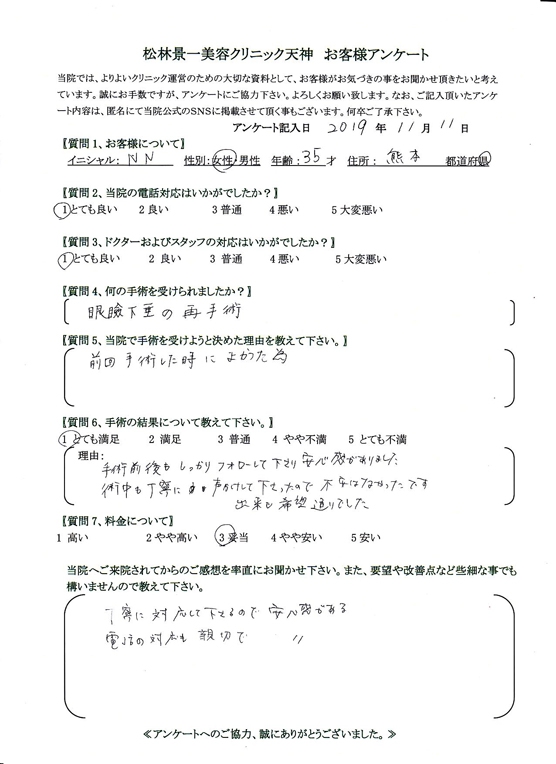 松林景一美容クリニック天神 お客様アンケート
当院では、よりよいクリニック運営のための大切な資料として、お客様がお気づきの事をお聞かせ頂きたいと考え
ています。誠にお手数ですが、アンケートにご協力下さい。よろしくお願い致します。なお、ご記入頂いたアンケ
ート内容は、匿名にて当院公式のSNSに掲載させて頂く事もございます。何卒ご了承下さい。
アンケート記入日 2019 年 11 月 11 日
〖質問1、お客様について〗
イニシャル: NN 性別:女性・男性 年齢:35才 住所: 熊本 都道府県
〖質問2、当院の電話対応はいかがでしたか?〗
1とても良い 2 良い 3 普通 4 悪い 5 大変悪い
〖質問3、ドクターおよびスタッフの対応はいかがでしたか?〗
1とても良い 2 良い 3 普通 4 悪い 5 大変悪い
〖質問4、何の手術を受けられましたか?〗
眼瞼下垂の再手術
〖質問5、当院で手術を受けようと決めた理由を教えて下さい。〗
前回手術した時によかった為
〖質問6、手術の結果について教えて下さい。〗
1 とても満足 2 満足 3 普通 4 やや不満 5 とても不満
理由:
手術前後もしっかりフォローして下さり安心感がありました
術中も丁寧に 声かけして下さったので不安はなかったです
出来も希望通りでした
〖質問7、料金について〗
1 高い 2 やや高い 3 妥当 4 やや安い 5 安い
当院へご来院されてからのご感想を率直にお聞かせ下さい。また、要望や改善点など些細な事でも
構いませんので教えて下さい。
丁寧に対応して下さるので安心感がある
電話の対応も親切で 〃
≪アンケートへのご協力、誠にありがとうございました。≫